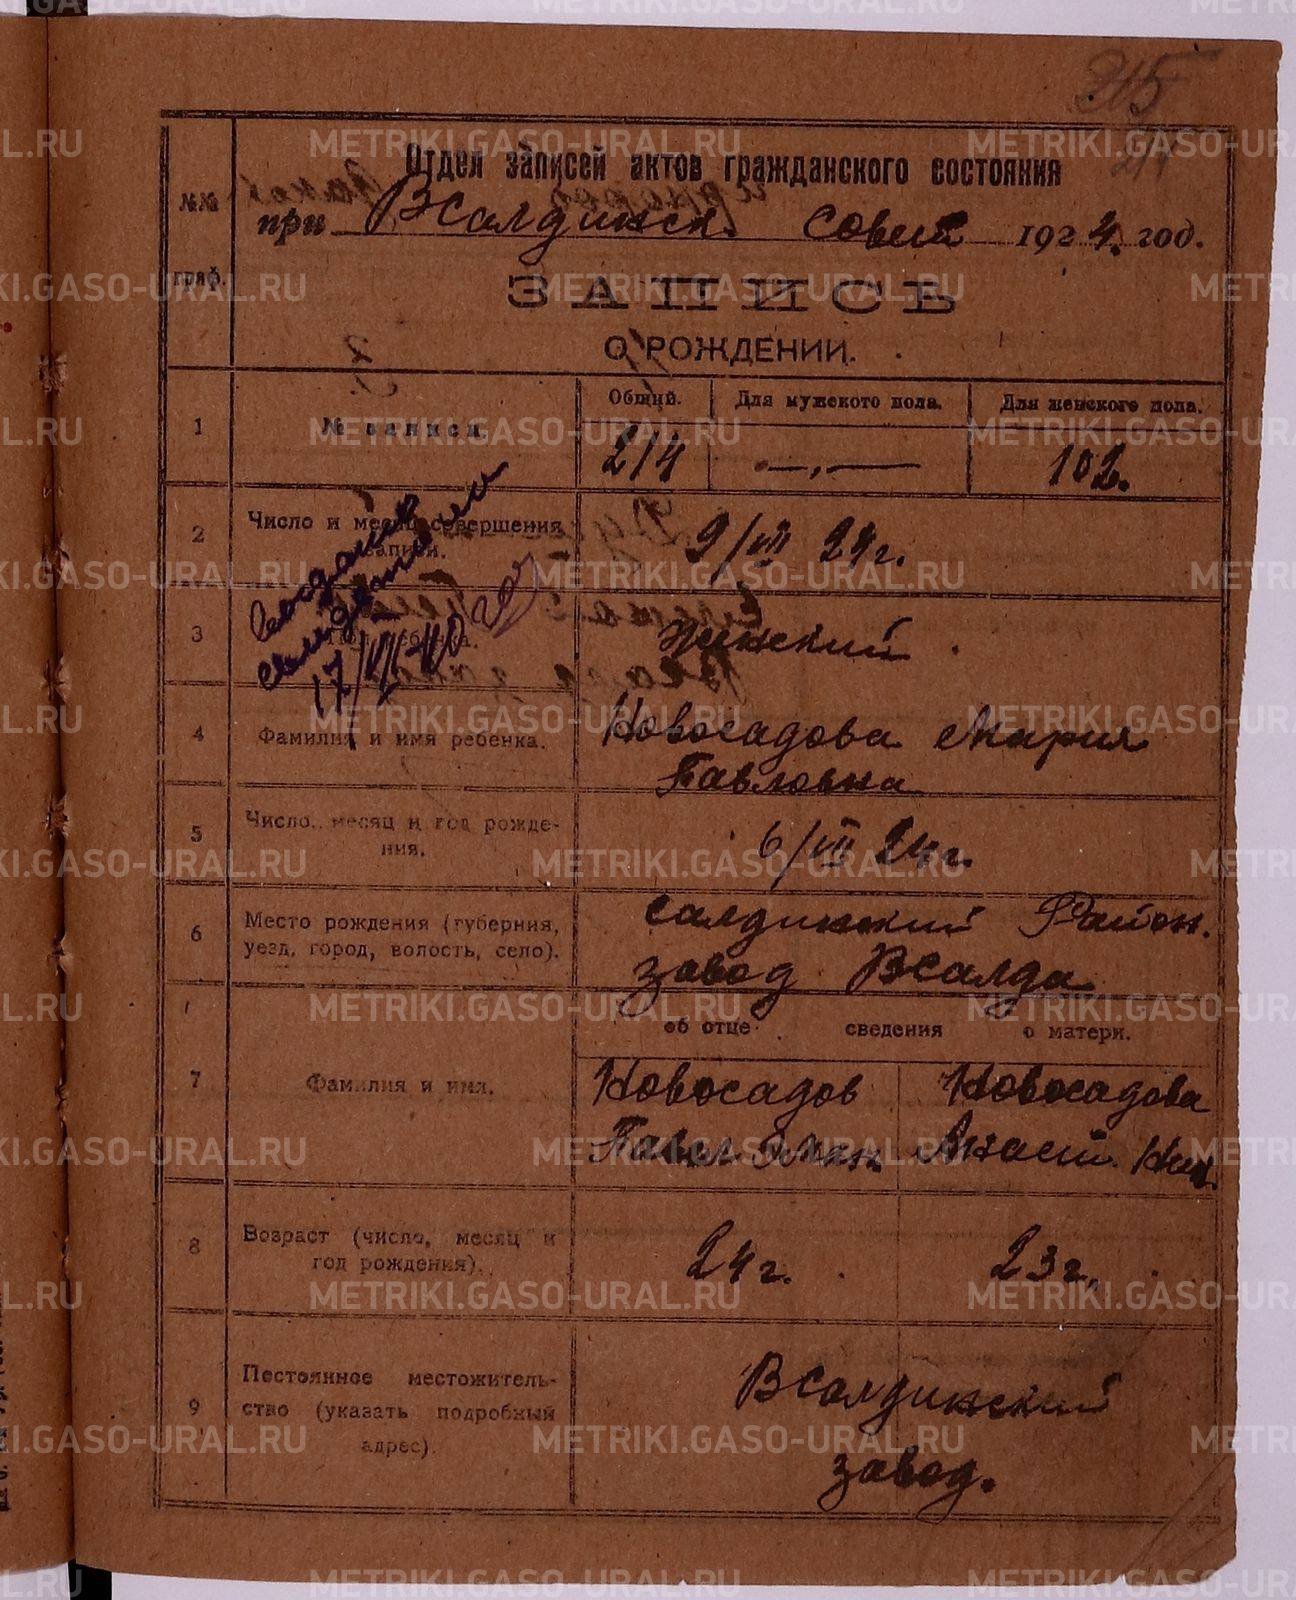 215
Отдел записей актов гражданского состояния
№№ граф.
при ВСалдинск. совет 1924 год.
ЗАПИСЬ
О РОЖДЕНИИ.
1 № записи. Общий. Для мужского пола. Для женского пола.
214 — 102.
2 Число и месяц совершения записи. 9/VIII 24 г.
3 Женский.
4 Фамилия и имя ребенка. Новосадова Мария
Павловна
5 Число, месяц и год рожде-
ния. 6/VIII 24 г.
6 Место рождения (губерния,
уезд, город, волость, село). Салдинский Район.
завод ВСалда
об отце сведения о матери.
7 Фамилия и имя. Новосадов Новосадова
Павел Анаст.
8 Возраст (число, месяц и
год рождения). 24 г. 23 г.
9 Постоянное местожитель-
ство (указать подробный
адрес). ВСалдинский
завод.
METRIKI.GASO-URAL.RU